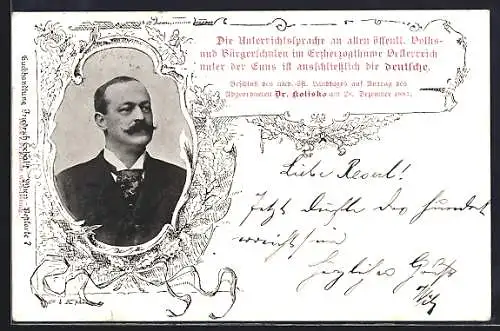 Die Unterrichtssprache an allen öffentl. Volks-
und Bürgerschulen im Erzherzogthume Oesterreich
unter der Enns ist ausschließlich die deutsche.
Beschluß des nied.-öst. Landtages auf Antrag des
Abgeordneten Dr. Kolisko am
Buchhandlung Friedrich Schalk, Wien
Liebe Reserl!
Jetzt dürfte das Hundert
erreicht sein
Herzliche Grüße